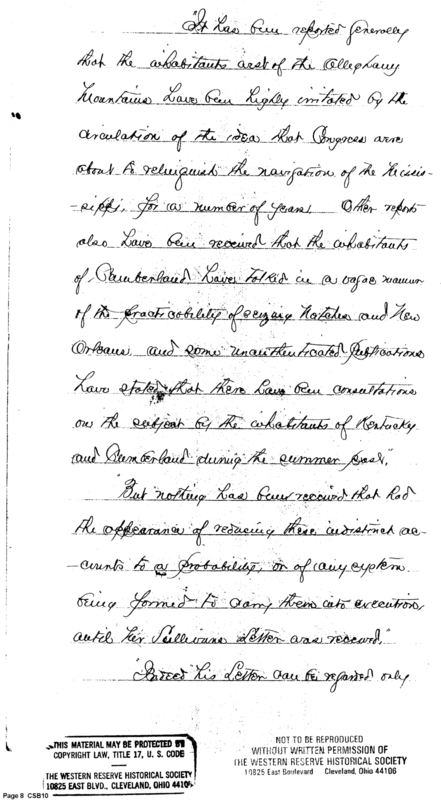 "It has been reported generally
that the inhabitants west of the Alleghany
Mountains have been highly irritated by the
circulation of the idea that Congress were
about to relinquish the navigation of the Missis-
-sippi, for a number of years. Other reports
also have been received that the inhabitants
of Cumberland have talked in a vague manner
of the practicability of seizing Natches and New
Orleans and some unauthenticated publications
have stated that there have been consultations
on the subject by the inhabitants of Kentucky
and Cumberland during the summer past."
"But nothing has been received that had
the appearance of reducing these indistinct ac-
-counts to a probability, or of any system
being formed to carry them into execution,
until Mr Sullivans Letter was received."
"Indeed his Letter can be regarded only
THIS MATERIAL MAY BE PROTECTED BY
COPYRIGHT LAW, TITLE 17, U. S. CODE
THE WESTERN RESERVE HISTORICAL SOCIETY
10825 EAST BLVD., CLEVELAND, OHIO 44106
NOT TO BE REPRODUCED
WITHOUT WRITTEN PERMISSION OF
THE WESTERN RESERVE HISTORICAL SOCIETY
10825 East Boulevard Cleveland, Ohio 44106
Page 8 CSB10